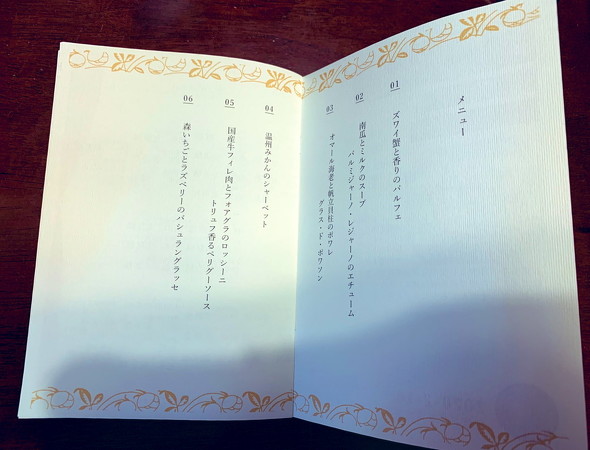 メニュー
01
ズワイ蟹と香りのパルフェ
02
南瓜とミルクのスープ
パルミジャーノ・レジャーノのエチューム
03
オマール海老と帆立貝柱のポワレ
グラス・ド・ポワソン
04
温州みかんのシャーベット
05
国産牛フィレ肉とフォアグラのロッシーニ
トリュフ香るペリグーソース
06
森いちごとラズベリーのバシュラングラッセ